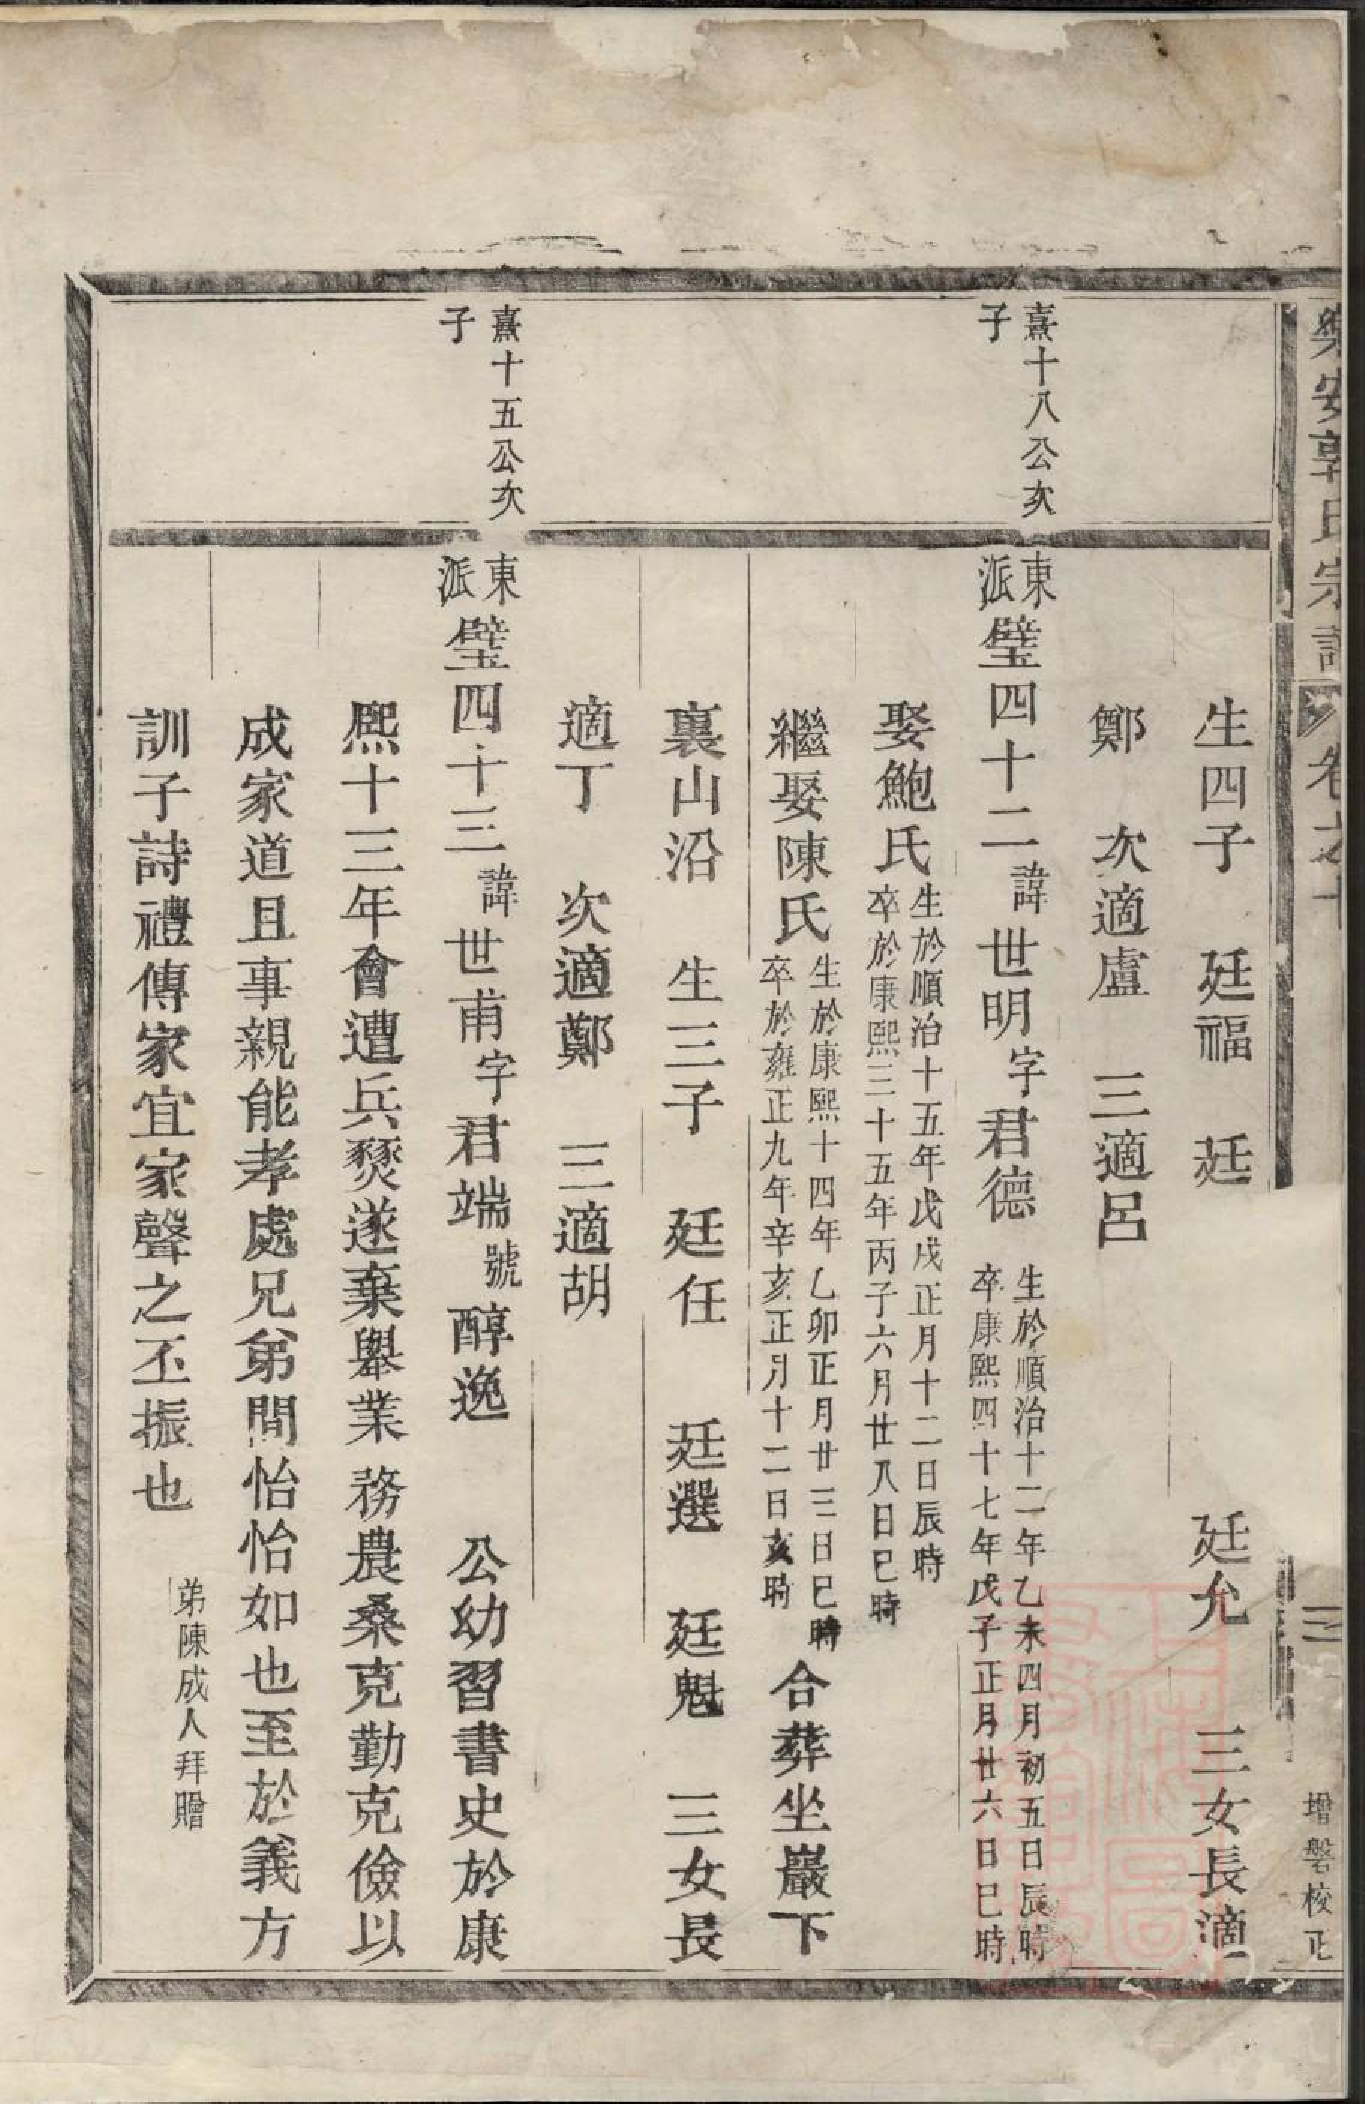 樂安郭氏宗譜 卷之十
三
增磐校正
生四子 廷福 廷 廷允 三女長適
鄭 次適盧 三適呂
熹十八公次子
東派璧四十二諱世明字君德 生於順治十二年乙未四月初五日辰時
卒康熙四十七年戊子正月廿六日巳時
娶鮑氏 生於順治十五年戊戌正月十二日辰時
卒於康熙三十五年丙子六月廿八日巳時
繼娶陳氏 生於康熙十四年乙卯正月廿三日巳時
卒於雍正九年辛亥正月十二日亥時
合葬坐巖下
裏山沿 生三子 廷任 廷選 廷魁 三女長
適丁 次適鄭 三適胡
熹十五公次子
東派璧四十三諱世甫字君端號醇逸 公幼習書史於康
熙十三年會遭兵燹遂棄舉業務農桑克勤克儉以
成家道且事親能孝處兄弟間怡怡如也至於義方
訓子詩禮傳家宜家聲之丕振也
弟陳成人拜贈